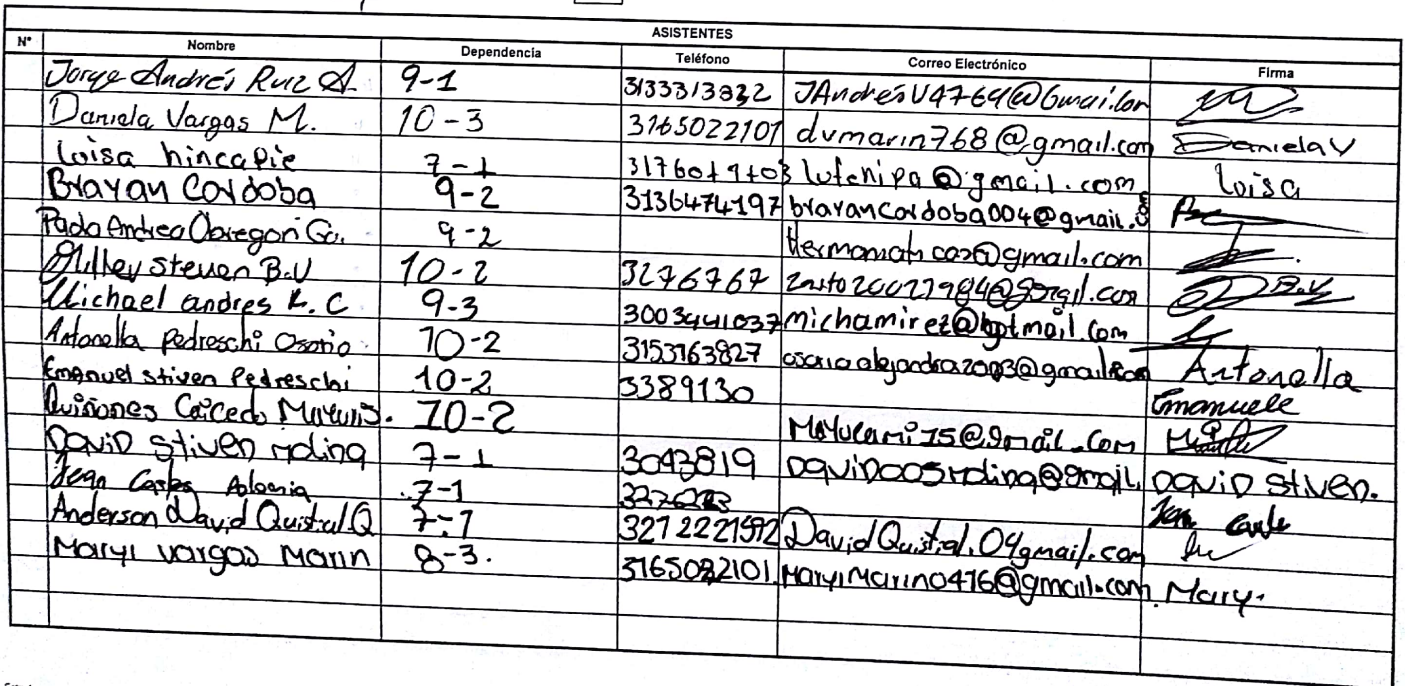 ASISTENTES
N° Nombre Dependencia Teléfono Correo Electrónico Firma
Jorge Andrés Ruiz A. 9-1 3133313832 JAndresU4764@Gmail.com
Daniela Vargas M. 10-3 3165022101 dvmarin768@gmail.com Daniela V
loisa hincapie 7-1 lufenipa@gmail.com loisa
Brayan Cordoba 9-2 3136474197 brayancordoba004@gmail.com
Paola Andrea Obregon Go. 9-2 @gmail.com
steven B.V 10-2 3276767
Michael andres R. C 9-3 3003441037 michamirez@hotmail.com
Antonella Pedreschi Osorio 10-2 3153163827 Antonella
Emanuel stiven Pedreschi 10-2 3389130 Emanuele
Quiñones Caicedo 10-2 @gmail.com
David Stiven molina 7-1 3043819 David Stiven.
Jean Carlos 7-1
Anderson David Quistial Q 7-1 3212221592 DavidQuistial.04gmail.com
Maryi vargas Marin 8-3. 3165022101 Maryimarin0416@gmail.com. Mary.